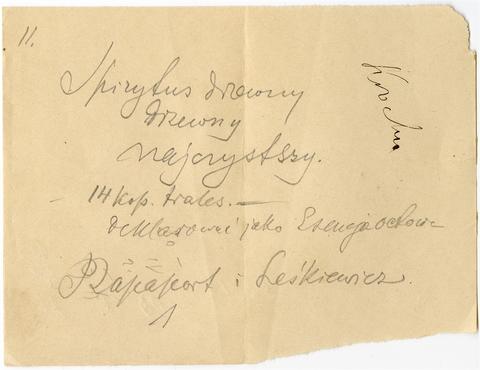 11.
Spirytus drzewny
drzewny
najczystszy.
14 kop. trales. —
deklarować jako Esencja octowa
Rapaport i Leśkiewicz.
1